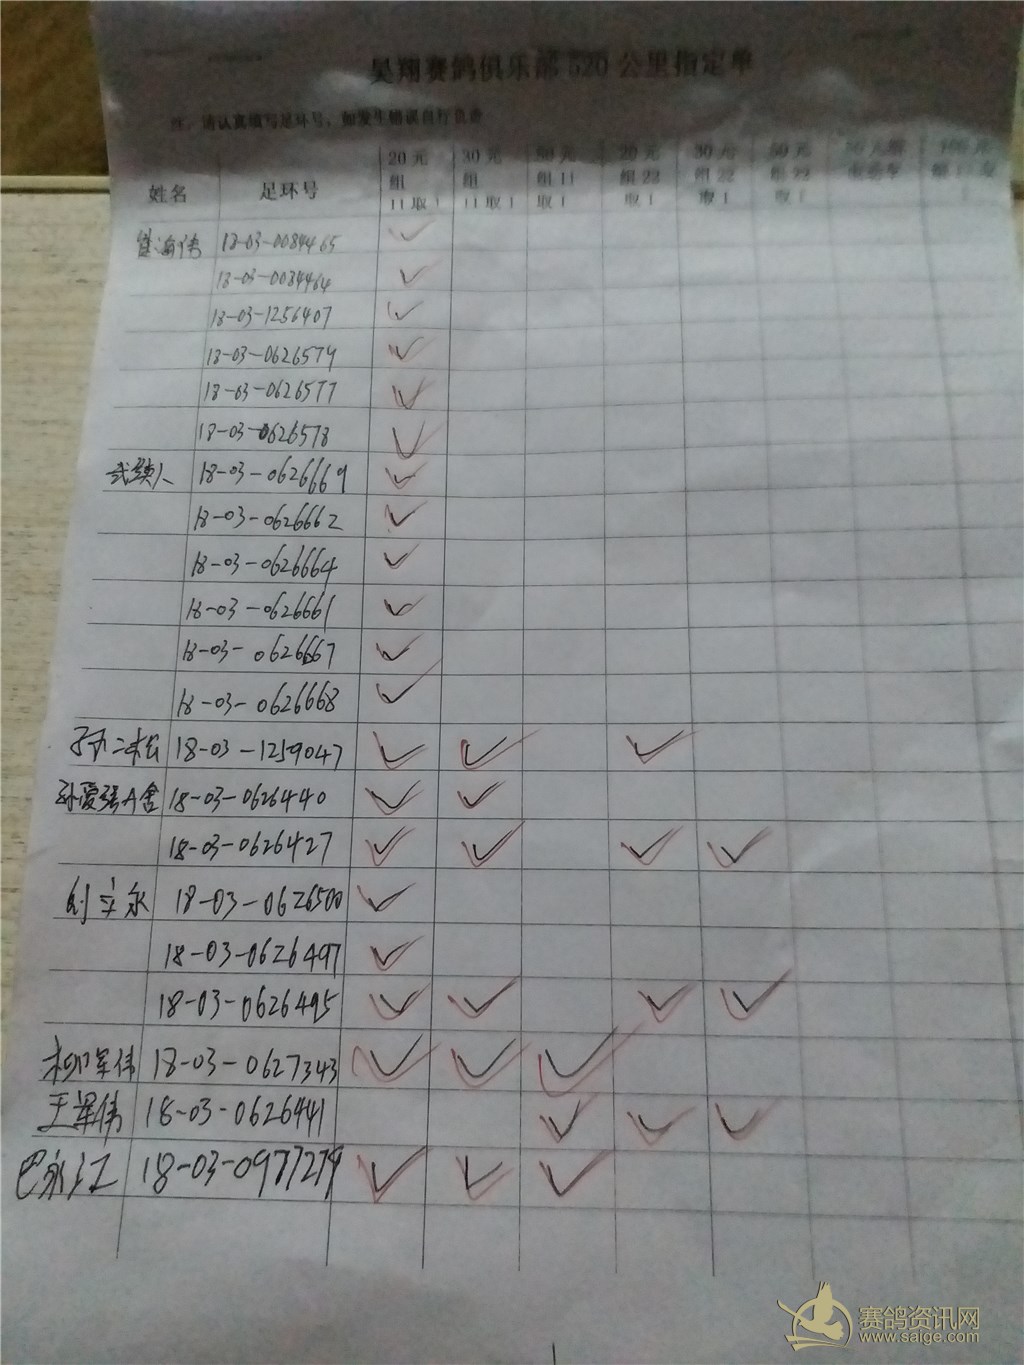 昊翔赛鸽俱乐部520公里指定单
注：请认真填写足环号，如发生错误自行负责
姓名 足环号 20元组11取1 30元组11取1 50元组11取1 20元组22取1 30元组22取1 50元组22取1
海伟 18-03-0084465
18-03-0084464
18-03-1256407
18-03-0626579
18-03-0626577
18-03-0626578
武续人 18-03-0626669
18-03-0626662
18-03-0626664
18-03-0626661
18-03-0626667
18-03-0626668
孙二栓 18-03-1259047
孙爱强A舍 18-03-0626440
18-03-0626427
刘立永 18-03-0626500
18-03-0626497
18-03-0626495
柳军伟 18-03-0627343
王军伟 18-03-0626441
巴永江 18-03-0977279
赛鸽资讯网
www.saige.com